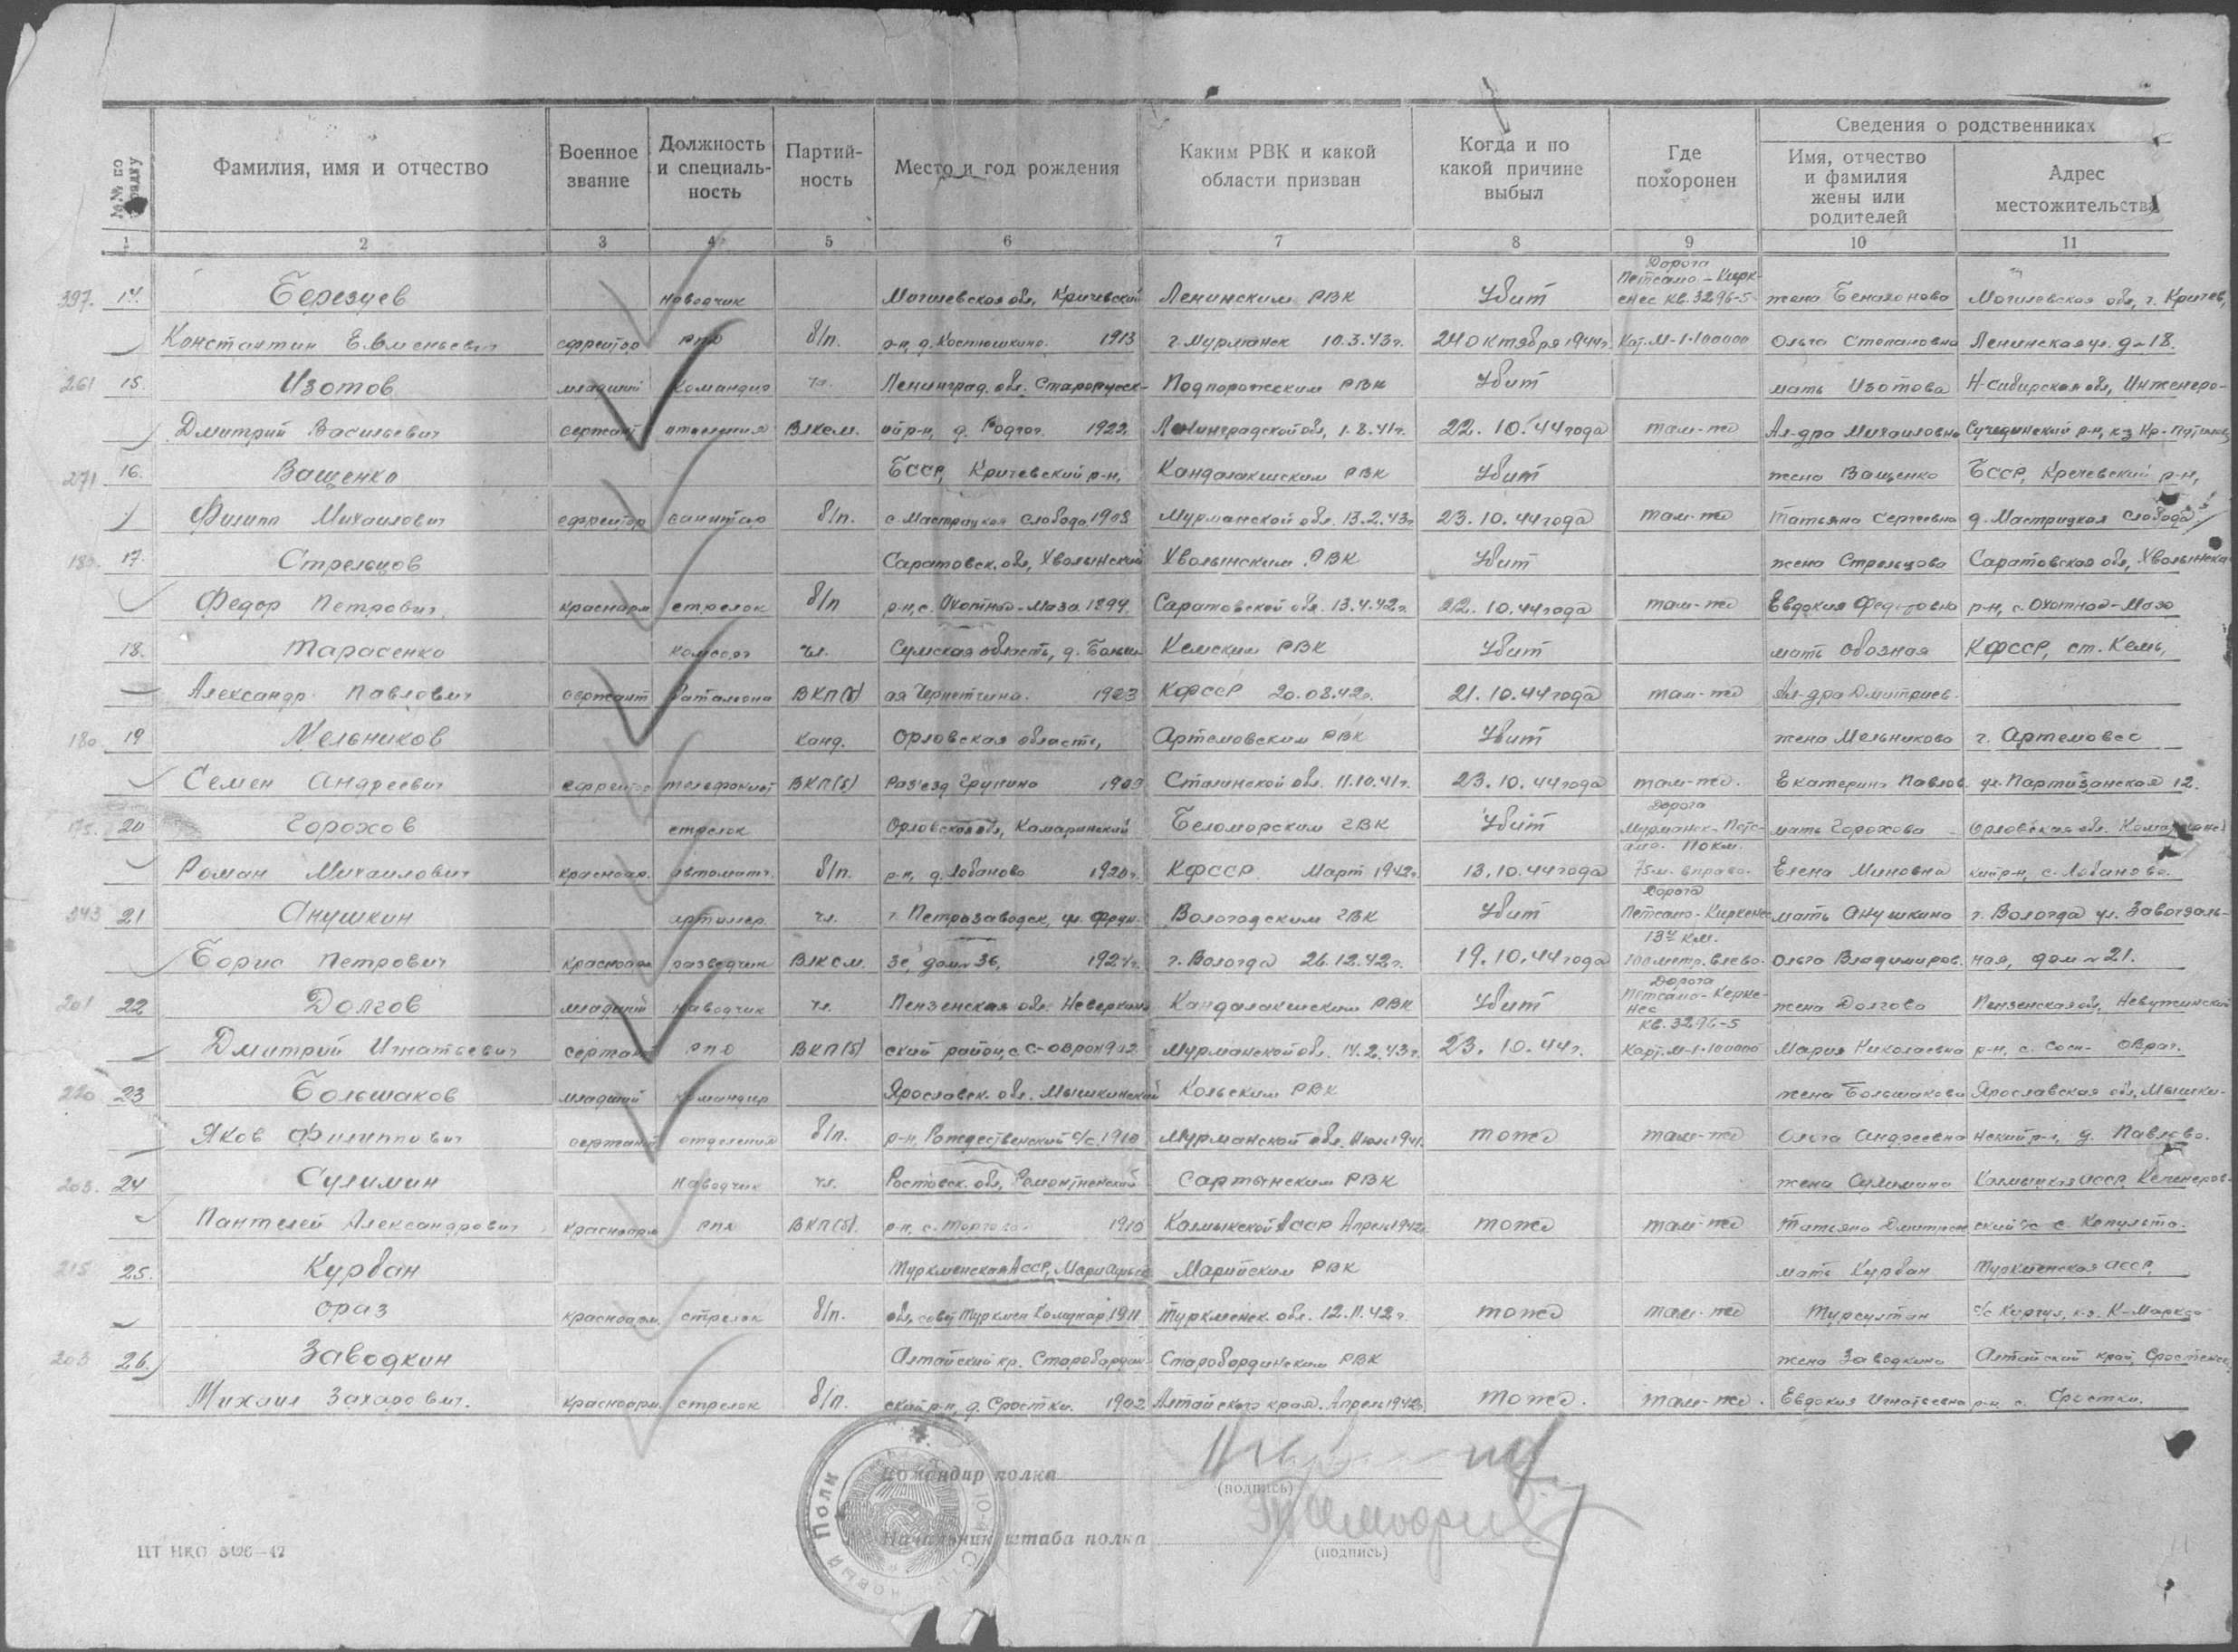 Сведения о родственниках
№№ по порядку Фамилия, имя и отчество Военное звание Должность и специальность Партийность Место и год рождения Каким РВК и какой области призван Когда и по какой причине выбыл Где похоронен Имя, отчество и фамилия жены или родителей Адрес местожительства
1 2 3 4 5 6 7 8 9 10 11
Дорога
Петсамо-Кирк-
397. 14. Березуев наводчик Могилевская обл, Кричевский Ленинским РВК Убит енес кв. 3296-5 жена Могилевская обл, г. Кричев,
Константин ефрейтор РПД б/п. р-н, д. Костюшкино. 1913 г. Мурманск 10.3.43г. 24 октября 1944г. Кар. М-1-100000 Ольга Степановна Ленинская ул. д-18.
261 15. Изотов младший командир чл. Ленинград. обл. Старорусск- Подпорожским РВК Убит мать Изотова Н-Сибирская обл,
Дмитрий Васильевич сержант отделения ВЛКСМ. ий р-н, д. 1922 Ленинградской обл, 1.8.41г. 22.10.44 года там-же Ал-дра Михаиловна р-н, к-з
271 16. Ващенко БССР, Кричевский р-н, Кандалакшским РВК Убит жена Ващенко БССР, Кречевский р-н,
Филипп Михаилович ефрейтор санитар б/п. с. слобода 1908 Мурманской обл. 13.2.43г 23.10.44 года там-же Татьяна Сергеевна д. слобода
180. 17. Стрельцов Саратовск. обл, Хволынский Хволынским РВК Убит жена Стрельцова Саратовская обл, Хволынска
Федор Петрович красноарм стрелок б/п р-н, с. Охотное-Маза 1899. Саратовской обл. 13.4.42г. 22.10.44 года там-же Евдокия Федоровна р-н, с. Охотное-Маза
18. Тарасенко комсорг чл. Сумская область, д. Кемским РВК Убит мать Обозная КФССР, ст. Кемь,
Александр Павлович сержант баталиона ВКП(б) ая Чернетчина. 1923 КФССР 20.08.42г. 21.10.44 года там-же Ал-дра Дмитриев.
180 19 Мельников канд. Орловская область, Артемовским РВК Убит жена Мельникова г. Артемовс
Семен Андреевич ефрейтор телефонист ВКП(б) Раз'езд 1909 Сталинской обл. 11.10.41г. 23.10.44 года там-же. Екатерина Павлов. ул. Партизанская 12.
Дорога
175. 20 Горохов стрелок Орловская обл, Комаринский Беломорским РВК Убит Мурманск-Петс- мать Горохова Орловская обл.
амо. 110 км.
Роман Михаилович красноар. автоматч. б/п. р-н, д. Лобаново 1920г. КФССР Март 1942г. 13.10.44 года 75 м. вправо. Елена Миновна кий р-н, с. Лобаново.
Дорога
343 21 Анушкин артилер. чл. г. Петрозаводск, ул. Фрун- Вологодским РВК Убит Петсамо-Киркенес мать Анушкина г. Вологда ул.
137 км.
Борис Петрович красноарм разведчик ВЛКСМ. зе, дом 36, 1924г. г. Вологда 26.12.42г. 19.10.44 года 100 метр. влево. Ольга Владимиров. ная, дом № 21.
Дорога
201 22 Долгов младший наводчик чл. Пензенская обл. Неверкин Кандалакшским РВК Убит Петсамо-Керке- жена Долгова Пензенская обл,
нес
кв. 3296-5
Дмитрий Игнатьевич сержант РПД ВКП(б) ский район, с 1902 Мурманской обл. 14.2.43г. 23.10.44г. Карт. М-1-100000 Мария Николаевна р-н, с. Сосн- Овраг.
220 23 Большаков младший командир Ярославск. обл. Мышкинский Кольским РВК жена Большакова Ярославская обл, Мышки-
Яков Филиппович сержант отделения б/п. р-н, Рождественский с/с. 1910 Мурманской обл. Июль 1941. тоже там-же Ольга Андреевна нский р-н, д. Павлово.
203. 24 Сулимин наводчик чл. Ростовск. обл, Ремонтненский Сарпынским РВК жена Сулимина Калмыцкая АССР,
Пантелей Александрович красноарм РПД ВКП(б). р-н, с. 1910 Калмыкской АССР Апрель 1942г. тоже там-же Татьяна Дмитриев
215 25. Курбан Туркменская АССР, Марийским РВК мать Курбан Туркменская АССР,
Ораз красноарм. стрелок б/п. обл, 1911 Туркменск. обл. 12.11.42г. тоже там-же с/с
203 26. Заводкин Алтайский кр. Старобардин- Старобардинским РВК жена Заводкина Алтайский край,
Михаил Захарович. красноарм. стрелок б/п. ский р-н, д. Сростки. 1902 Алтайского края. Апрель 1942г. тоже. там-же. Евдокия Игнатьевна р-н с. Сростки.
Командир полка
(подпись)
Начальник штаба полка
(подпись)
ЦТ НКО 3426-42